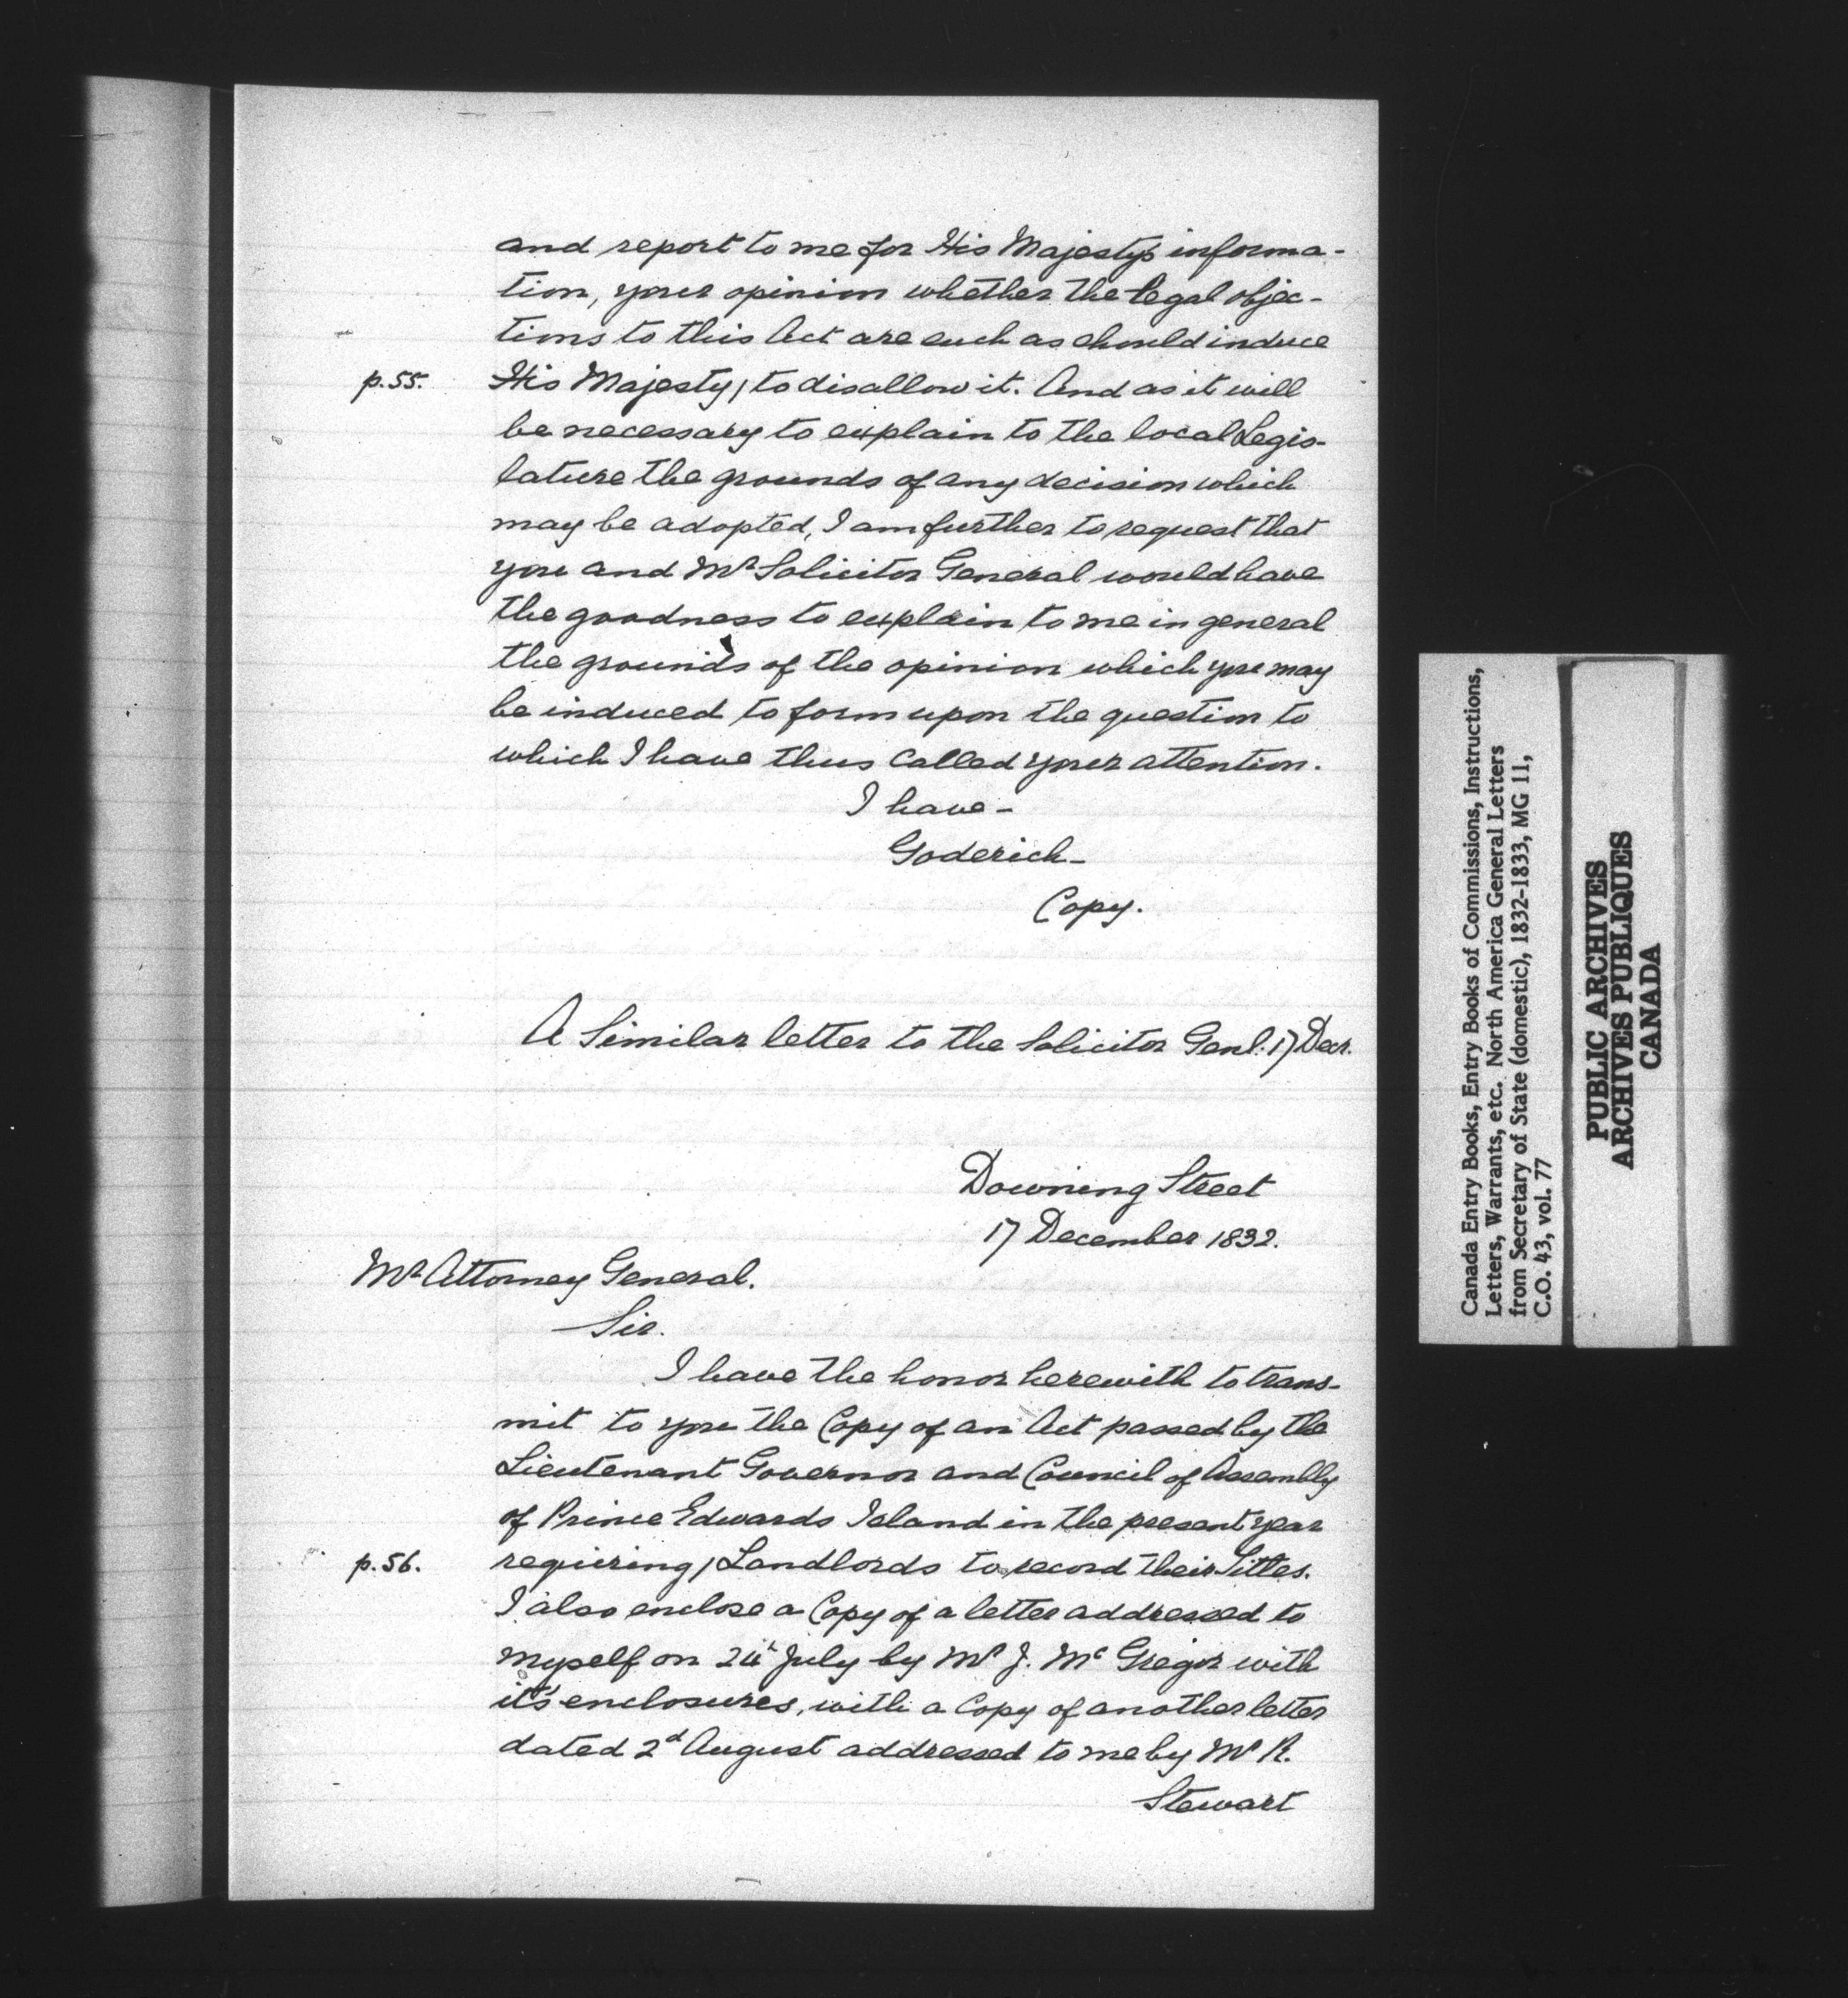 and report to me for His Majesty's informa-
tion, your opinion whether the legal objec-
tions to this Act are such as should induce
p.55. His Majesty/ to disallow it. And as it will
be necessary to explain to the local Legis-
lature the grounds of any decision which
may be adopted, I am further to request that
you and Mr Solicitor General would have
the goodness to explain to me in general
the grounds of the opinion which you may
be induced to form upon the question to
which I have thus called your attention.
I have-
Goderich-
Copy.
A Similar letter to the Solicitor Genl. 17 Decr.
Downing Street
17 December 1832.
Mr Attorney General.
Sir.
I have the honor herewith to trans-
mit to you the Copy of an Act passed by the
Lieutenant Governor and Council of Assembly
of Prince Edwards Island in the present year
p.56. requiring/ Landlords to record their Titles.
I also enclose a Copy of a letter addressed to
myself on July by Mr J. Mc Gregor with
it's enclosures, with a Copy of another letter
dated 2d August addressed to me by Mr R.
Stewart
Canada Entry Books, Entry Books of Commissions, Instructions,
Letters, Warrants, etc. North America General Letters
from Secretary of State (domestic), 1832-1833, MG 11,
C.O. 43, vol. 77
PUBLIC ARCHIVES
ARCHIVES PUBLIQUES
CANADA